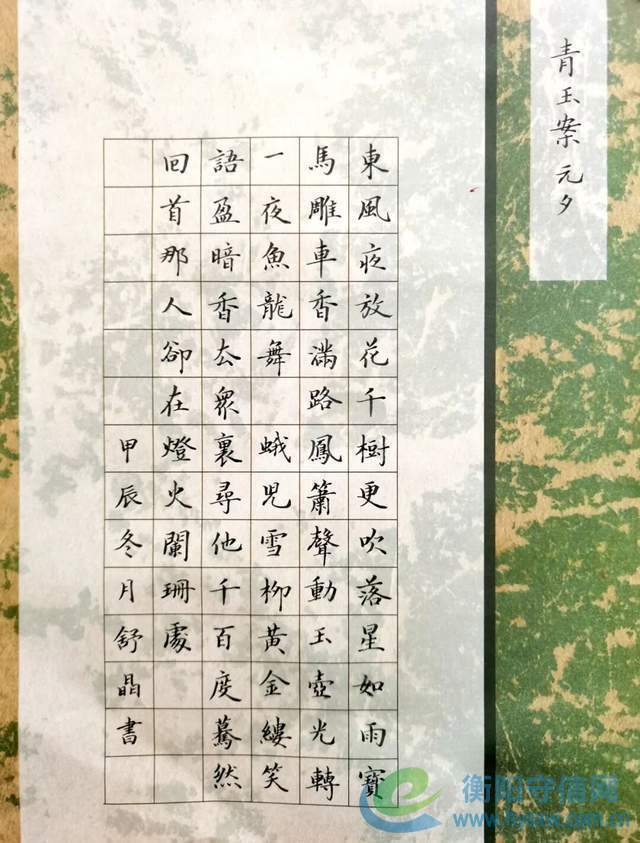 青玉案 元夕
東風夜放花千樹更吹落星如雨寶
馬雕車香滿路鳳簫聲動玉壺光轉
一夜魚龍舞 蛾兒雪柳黃金縷笑
語盈暗香去衆裏尋他千百度驀然
回首那人卻在燈火闌珊處
甲辰冬月舒晶書
衡阳守信网
www.hylaw.com.cn